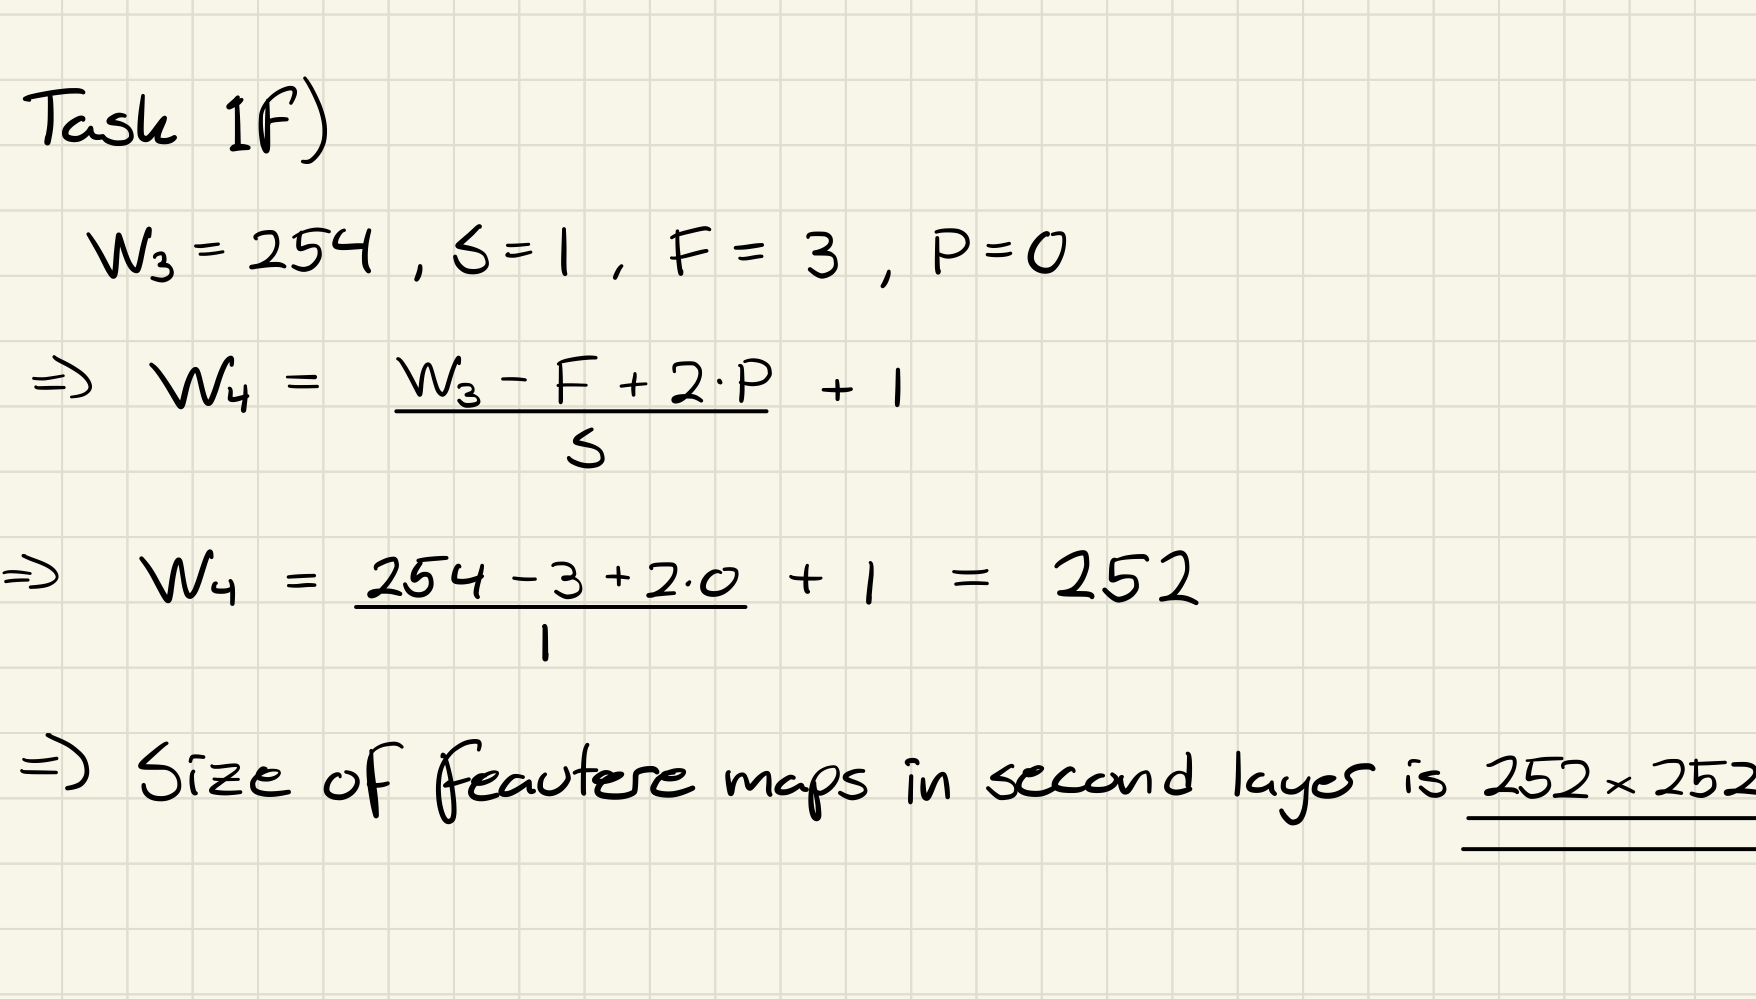 Task 1F)
W₃ = 254 , S = 1 , F = 3 , P = 0
=> W₄ = (W₃ - F + 2·P) / S + 1
=> W₄ = (254 - 3 + 2·0) / 1 + 1 = 252
=> Size of feautere maps in second layer is 252 × 252